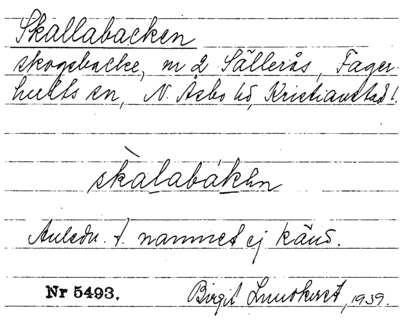 Skallabacken
skogsbacke, m 2 Sällerås, Fager-
hults sn, N. Åsbo hd, Kristianstad l.
skàlabákən
Anledn. t. namnet ej känd.
Nr 5493. Birgit Lundkvist, 1939.